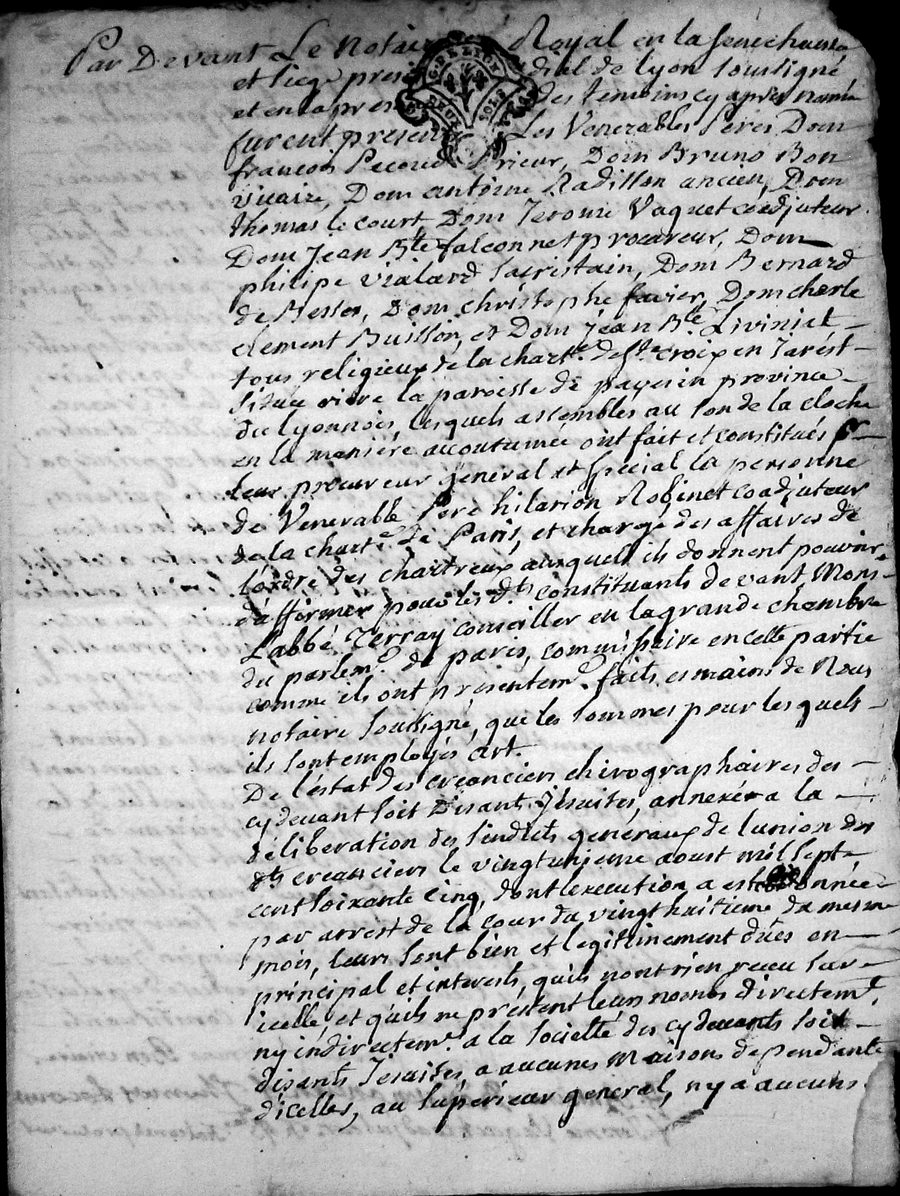 Par Devant Le Notaire Royal en la senechaussé
et siege presidial de Lyon soussigné
et en la presence des temoins cy après nommés
furent present Les Venerables Peres Dom
françois Pecoud Prieur, Dom Bruno Bon
vicaire, Dom antoine Radillon ancien, Dom
thomas le court, Dom Jerome Vaquet coadjuteur.
Dom Jean Bte falconnet procureur, Dom
philipe vialard sacristain, Dom Bernard
de Nesson, Dom christophe favier, Dom charle
clement Buisson, et Dom jean Bte Liviniat
tous religieux de la charte. de ste croix en Jarest
située riere la paroisse de paveu in province
du lyonnois, lesquels assemblés au son de la cloche
en la maniere accoutumée ont fait et constitués pr
leur procureur general et special la personne
de Venerable Pere hilarion Robinet coadjuteur
de la charte. de Paris, et chargé des affaires de
l'ordre des chartreux auquel ils donnent pouvoir
d'affirmer pour les dts constituants devant Mons
L'abbé Terray conseiller en la grande chambre
du parlemt. de paris, commissaire en cette partie
comme ils ont presentemt. faits es mains de Nous
notaire soussigné, que les sommes pour lesquels
ils sont employés art.
De l'estat des creanciers chirographaires des
cy devant soit Disants Jesuites, annexée a la
déliberation des sindics generaux de lunion des
dts creanciers le vingtunieme aoust mil sept
cent soixante cinq, dont execution a esté donnée
par arrest de la cour du vingt huitieme du mesme
mois, leurs sont bien et legitimement dües en
principal et interests, quils nont rien receu sur
icelle, et quils ne prêtent leurs noms directemt.
ny indirectemt. a la societté des cydevants soit
disants Jesuites, a aucunes Maisons dependante
dicelles, au supérieur general, ny a aucuns
G. DE LYON
DEUX SOLS